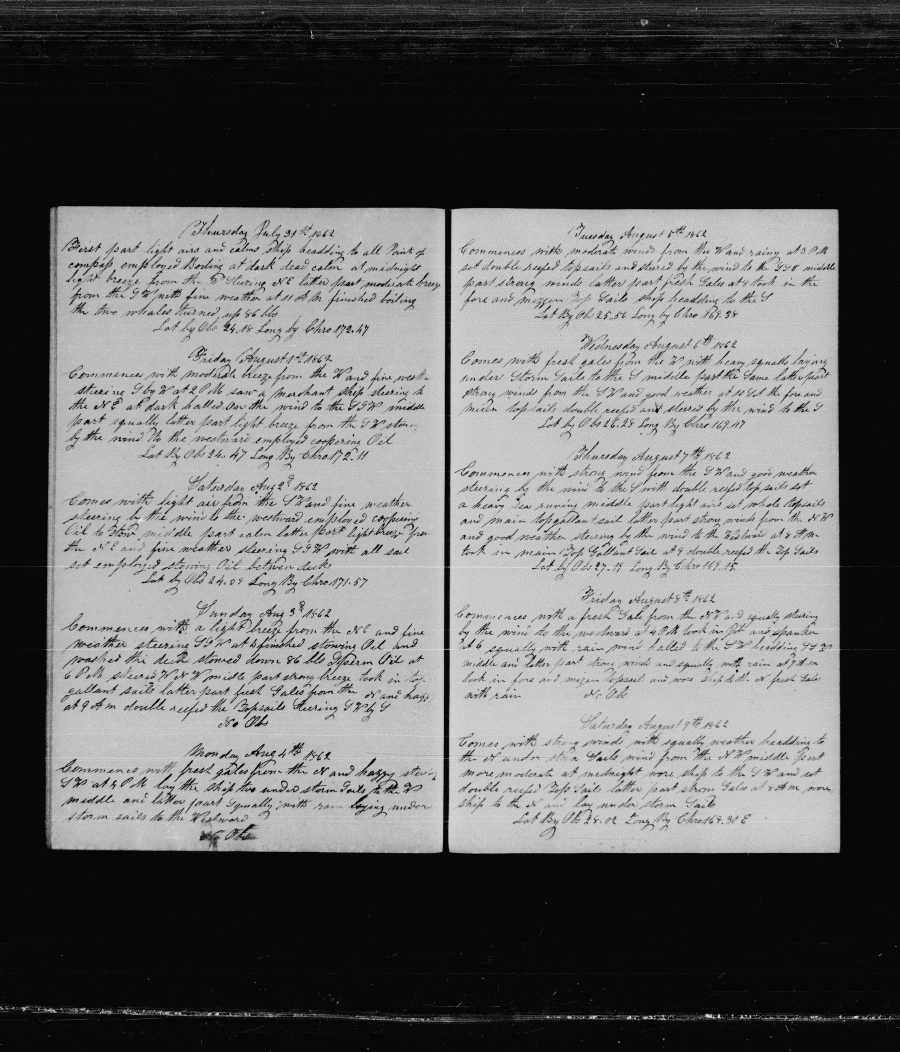 Thursday July 31st 1862
First part light airs and calms Ship headding to all Points of
compass employed Boiling at dark dead calm at midnight
light breeze from the W Steering NE latter part moderate breeze
from the S W with fine weather at 11 A M finished boiling
the two whales turned up 86 bbls
Lat by Obs 24.18 Long by Chro 172.47
Friday August 1st 1862
Commences with moderate breeze from the W and fine weath
steering S by W at 2 P M saw a merchant ship steering to
the NE at dark halled on the wind to the S S W middle
part squally latter part light breeze from the S W steering
by the wind to the westward employed coopering Oil
Lat By Obs 24.47 Long By Chro 172.11
Saturday Aug 2d 1862
Comes with light air from the S W and fine weather
steering by the wind to the westward employed coopering
Oil to stow middle part calm latter part light breeze from
the N E and fine weather steering S S W with all sail
set employed stowing Oil betwen decks
Lat by Obs 24.09 Long By Chro 171.57
Sunday Aug 3d 1862
Commences with a light breeze from the N E and fine
weather steering S S W at 3 finished stowing Oil and
washed the deck stowed down 86 bbls Sperm Oil at
6 P M steered W N W midle part strong breeze took in top
gallant sails latter part fresh Gales from the N and hazy
at 9 A m double reefed the Topsails steering S W by S
No Obs
Monday Aug 4th 1862
Commences with fresh gales from the N and hazzy steering
S W at 4 P M lay the ship too under storm Sails to the W
meddle and latter part squally with rain laying under
storm sails to the Westward
No Obs
Tuesday August 5th 1862
Commences with moderate wind from the W and rainy at 3 P M
set double reefed topsails and steered by the wind to the S S E middle
part strong winds latter part fresh Gales at 9 took in the
fore and mizzen Top Sails ship headding to the S
Lat By Obs 25.56 Long by Chro 169.28
Wednesday August 6th 1862
Comes with fresh gales from the W with heavy squalls laying
under Storm Sails to the S middle part the same latter part
strong winds from the S W and good weather at 10 Set the fore and
mizen topsails double reefed and steered by the wind to the S
Lat By Obs 26.28 Long By Chro 169.47
Thursday August 7th 1862
Commences with strong wind from the S W and good weather
steering by the wind to the S with double reefed top sails set
a heavy Sea runing middle part light airs set whole topsails
and main topgallant sail latter part strong winds from the N W
and good weather steering by the wind to the Westward at 8 A m
took in main Top Gallant Sail at 9 double reefed the Top Sails
Lat by Obs 27.19 Long By Chro 169.15
Friday August 8th 1862
Commences with a fresh Gale from the N W and squally steering
by the wind to the westward at 4 P M took in jib and spanker
at 6 squally with rain wind halled to the S W headding S S E
middle and latter part strong winds and squally with rain at 7 A m
took in fore and mizzen Topsail and wore ship to the N fresh Gales
with rain No Obs
Saturday August 9th 1862
Comes with strong winds with squally weather headding to
the N under storm Sails wind from the N W middle part
more moderate at midnight wore ship to the S W and set
double reefed Top Sails latter part strong Gales at 8 A m wore
ship to the N and lay under storm Sails
Lat By Obs 28.02 Long By Chro 168.30 E